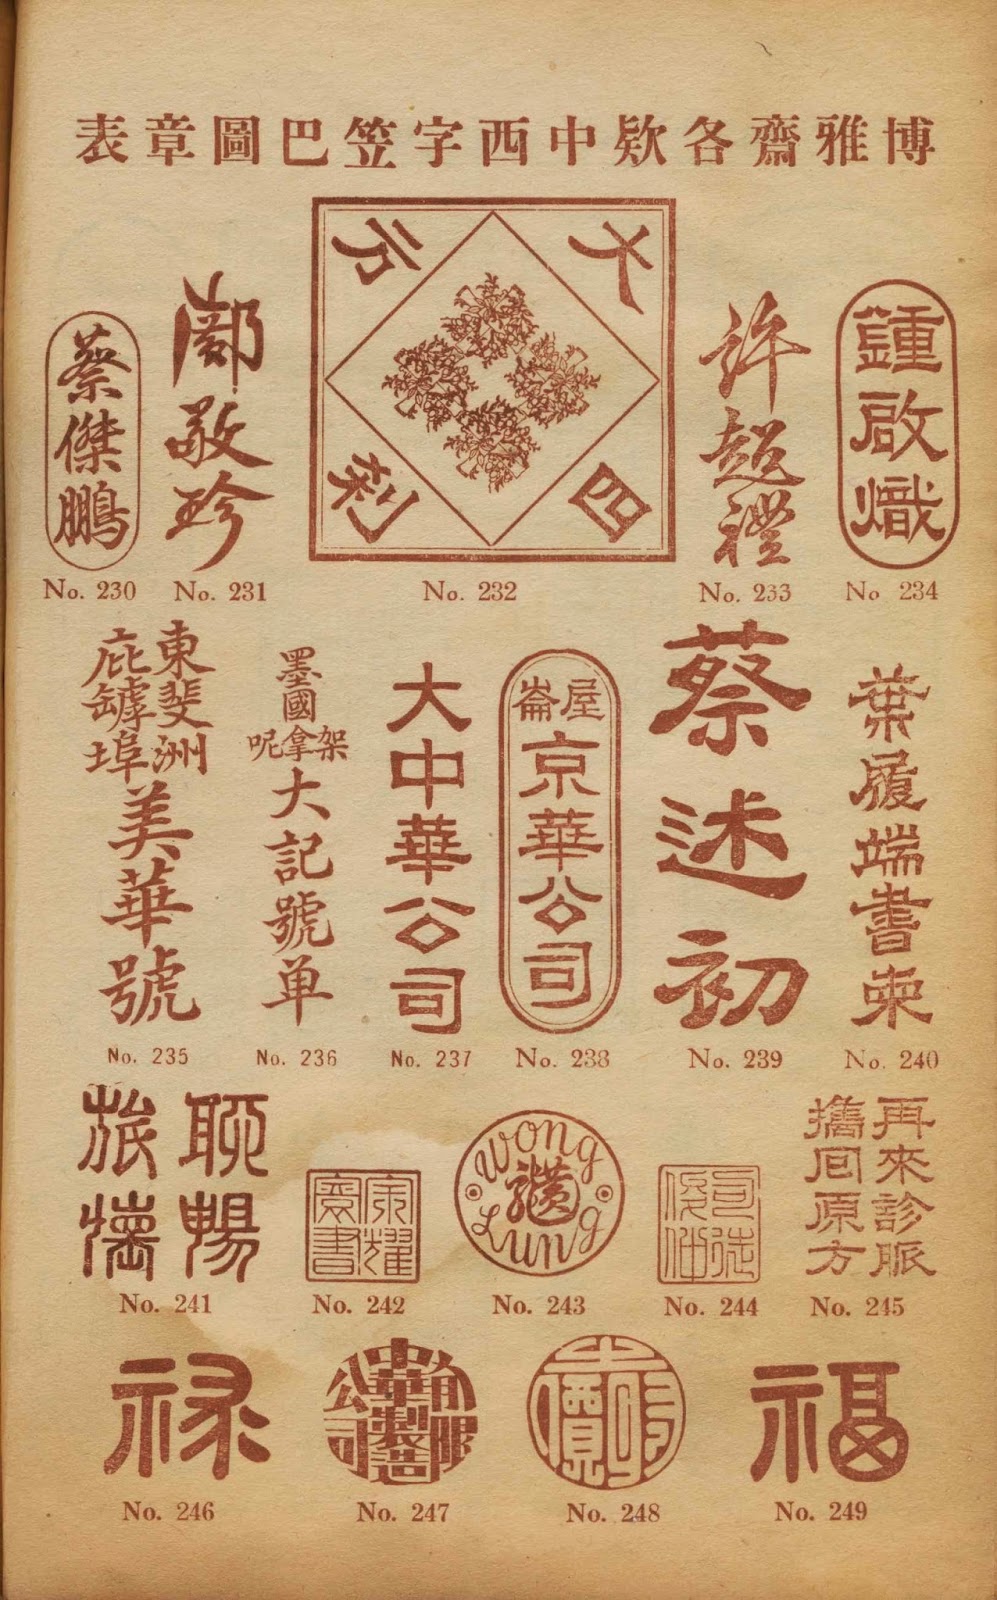 博雅齋各欵中西字笠巴圖章表
蔡傑鵬
No. 230
敬珍
No. 231
大利四方
No. 232
許超禮
No. 233
鍾啟熾
No 234
東斐洲
庇罅埠
美華號
No. 235
墨國
架拿呢
大記號单
No. 236
大中華公司
No. 237
屋崙
京華公司
No. 238
蔡述初
No. 239
葉履端書柬
No. 240
聊暢
旅懷
No. 241
耀
書
No. 242
Wong
Lung
No. 243
司徒
No. 244
再來診脈
攜回原方
No. 245
禄
No. 246
中華製造
有限
公司
No. 247
No. 248
福
No. 249